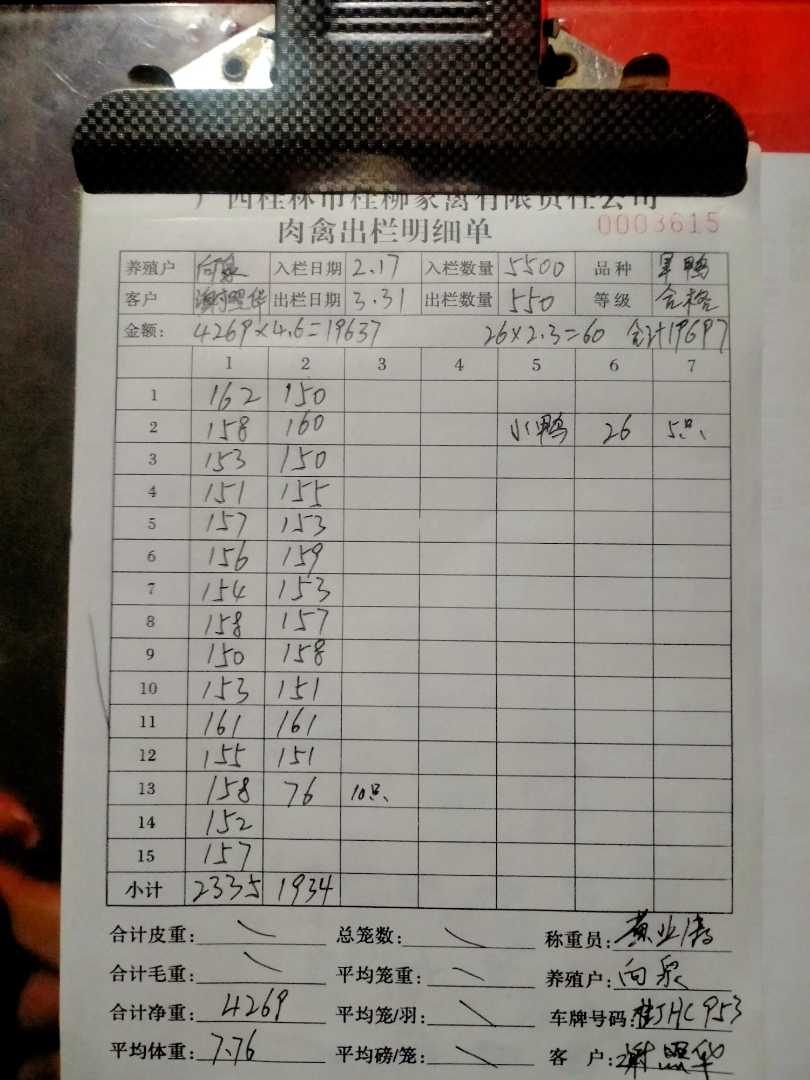 广西桂林市桂柳家禽有限责任公司
肉禽出栏明细单 0003615
养殖户 向泉 入栏日期 2.17 入栏数量 5500 品种 旱鸭
客户 谢照华 出栏日期 3.31 出栏数量 550 等级 合格
金额: 4269×4.6=19637 26×2.3=60 合计19697
1 2 3 4 5 6 7
1 162 150
2 158 160 小鸭 26 5只
3 153 150
4 151 155
5 157 153
6 156 159
7 154 153
8 158 157
9 150 158
10 153 151
11 161 161
12 155 151
13 158 76 10只
14 152
15 157
小计 2335 1934
合计皮重: 总笼数: 称重员: 黄业
合计毛重: 平均笼重: 养殖户: 向泉
合计净重: 4269 平均笼/羽: 车牌号码: 桂JHC953
平均体重: 7.76 平均磅/笼: 客户: 谢照华